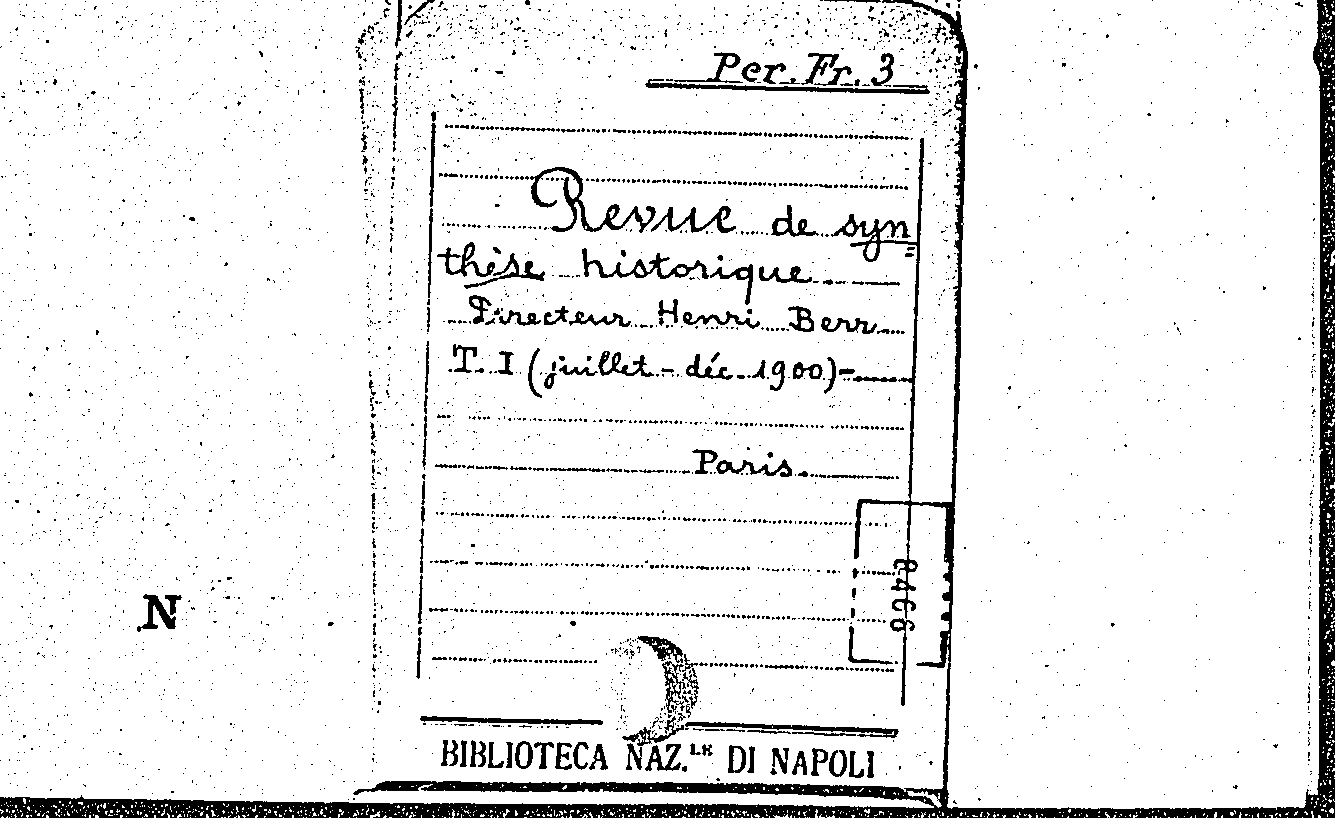 Per. Fr. 3
Revue de syn=
thèse historique
Directeur Henri Berr
T. I (juillet - déc. 1900)-
Paris.
N
BIBLIOTECA NAZ.LE DI NAPOLI